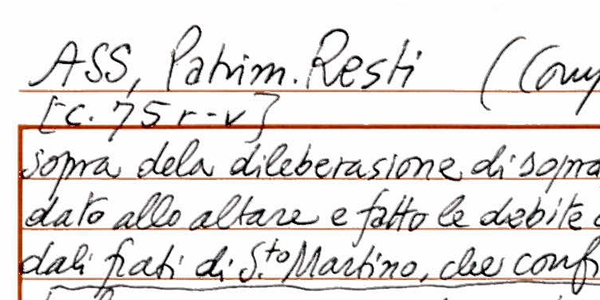 ASS, Patrim. Resti (Comp
[c. 75 r-v]
sopra dela dileberasione di sopra
dato allo altare e fatto le debite
dali frati di S.to Martino, che conf